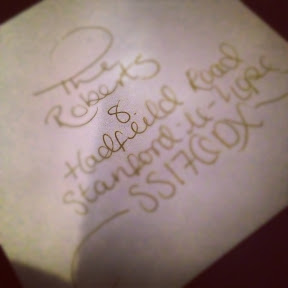 The
Roberts
8
Hadfield Road
Stanford-le-Hope
SS17 0DX